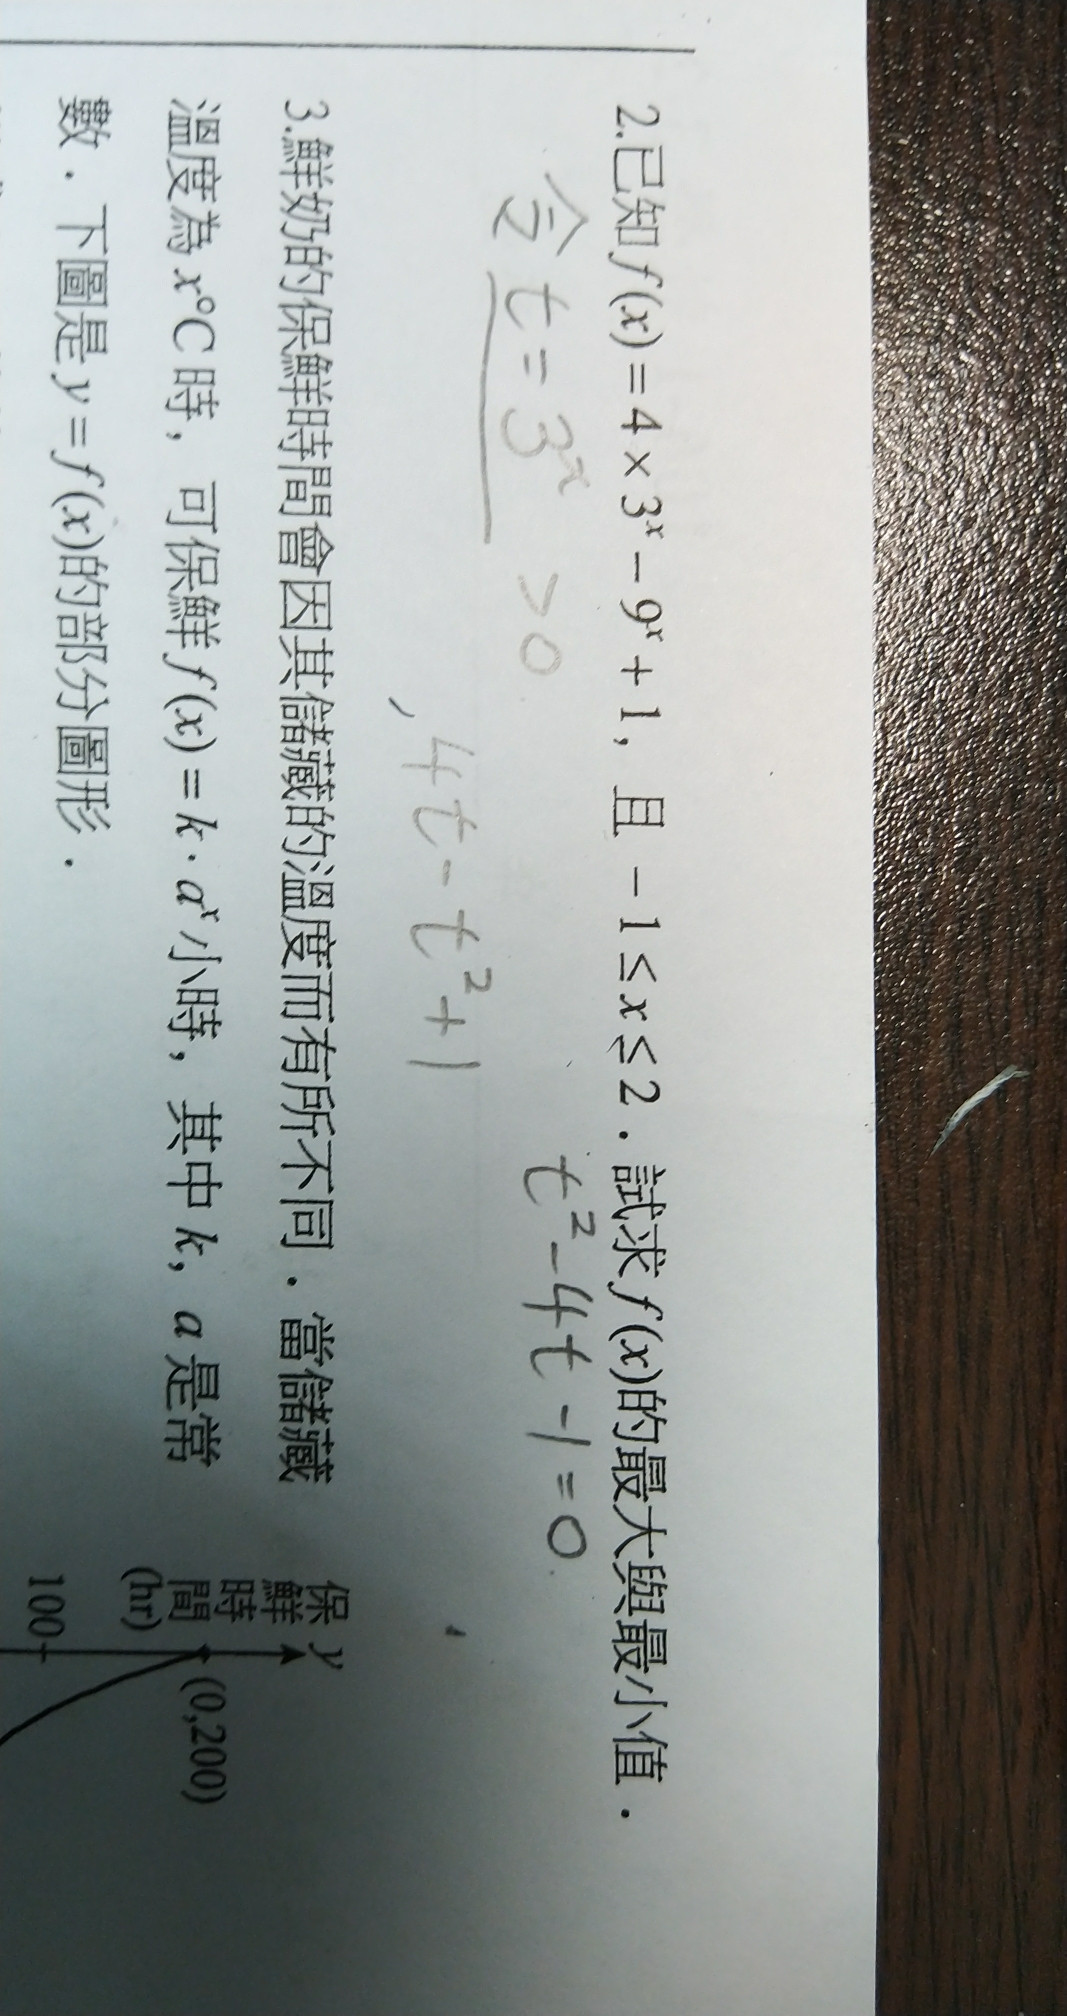 2.已知f(x)=4×3ˣ−9ˣ+1，且 −1≤x≤2．試求f(x)的最大與最小值．
令 t=3ˣ >0
t²−4t−1=0
, 4t−t²+1
3.鮮奶的保鮮時間會因其儲藏的溫度而有所不同．當儲藏
溫度為x°C時，可保鮮f(x)=k·aˣ小時，其中k，a是常
數．下圖是y=f(x)的部分圖形．
y
保鮮時間(hr)
(0,200)
100